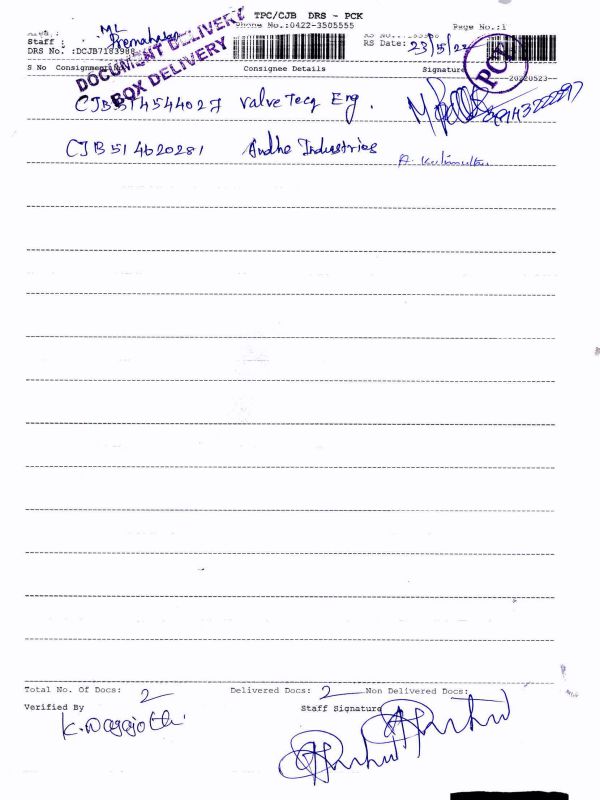 TPC/CJB DRS - PCK
Phone No.:0422-3505555
Page No.:1
ML
Staff : Premahasan
RS Date: 23/5/22
DRS No. :DCJB7183988
DOCUMENT DELIVERY
BOX DELIVERY
PCK
S No Consignment Consignee Details Signature
20220523
CJB514544027 Valve Tecq Eng.
CJB514620281 Andhe Industries
Total No. Of Docs: 2 Delivered Docs: 2 Non Delivered Docs:
Verified By Staff Signature